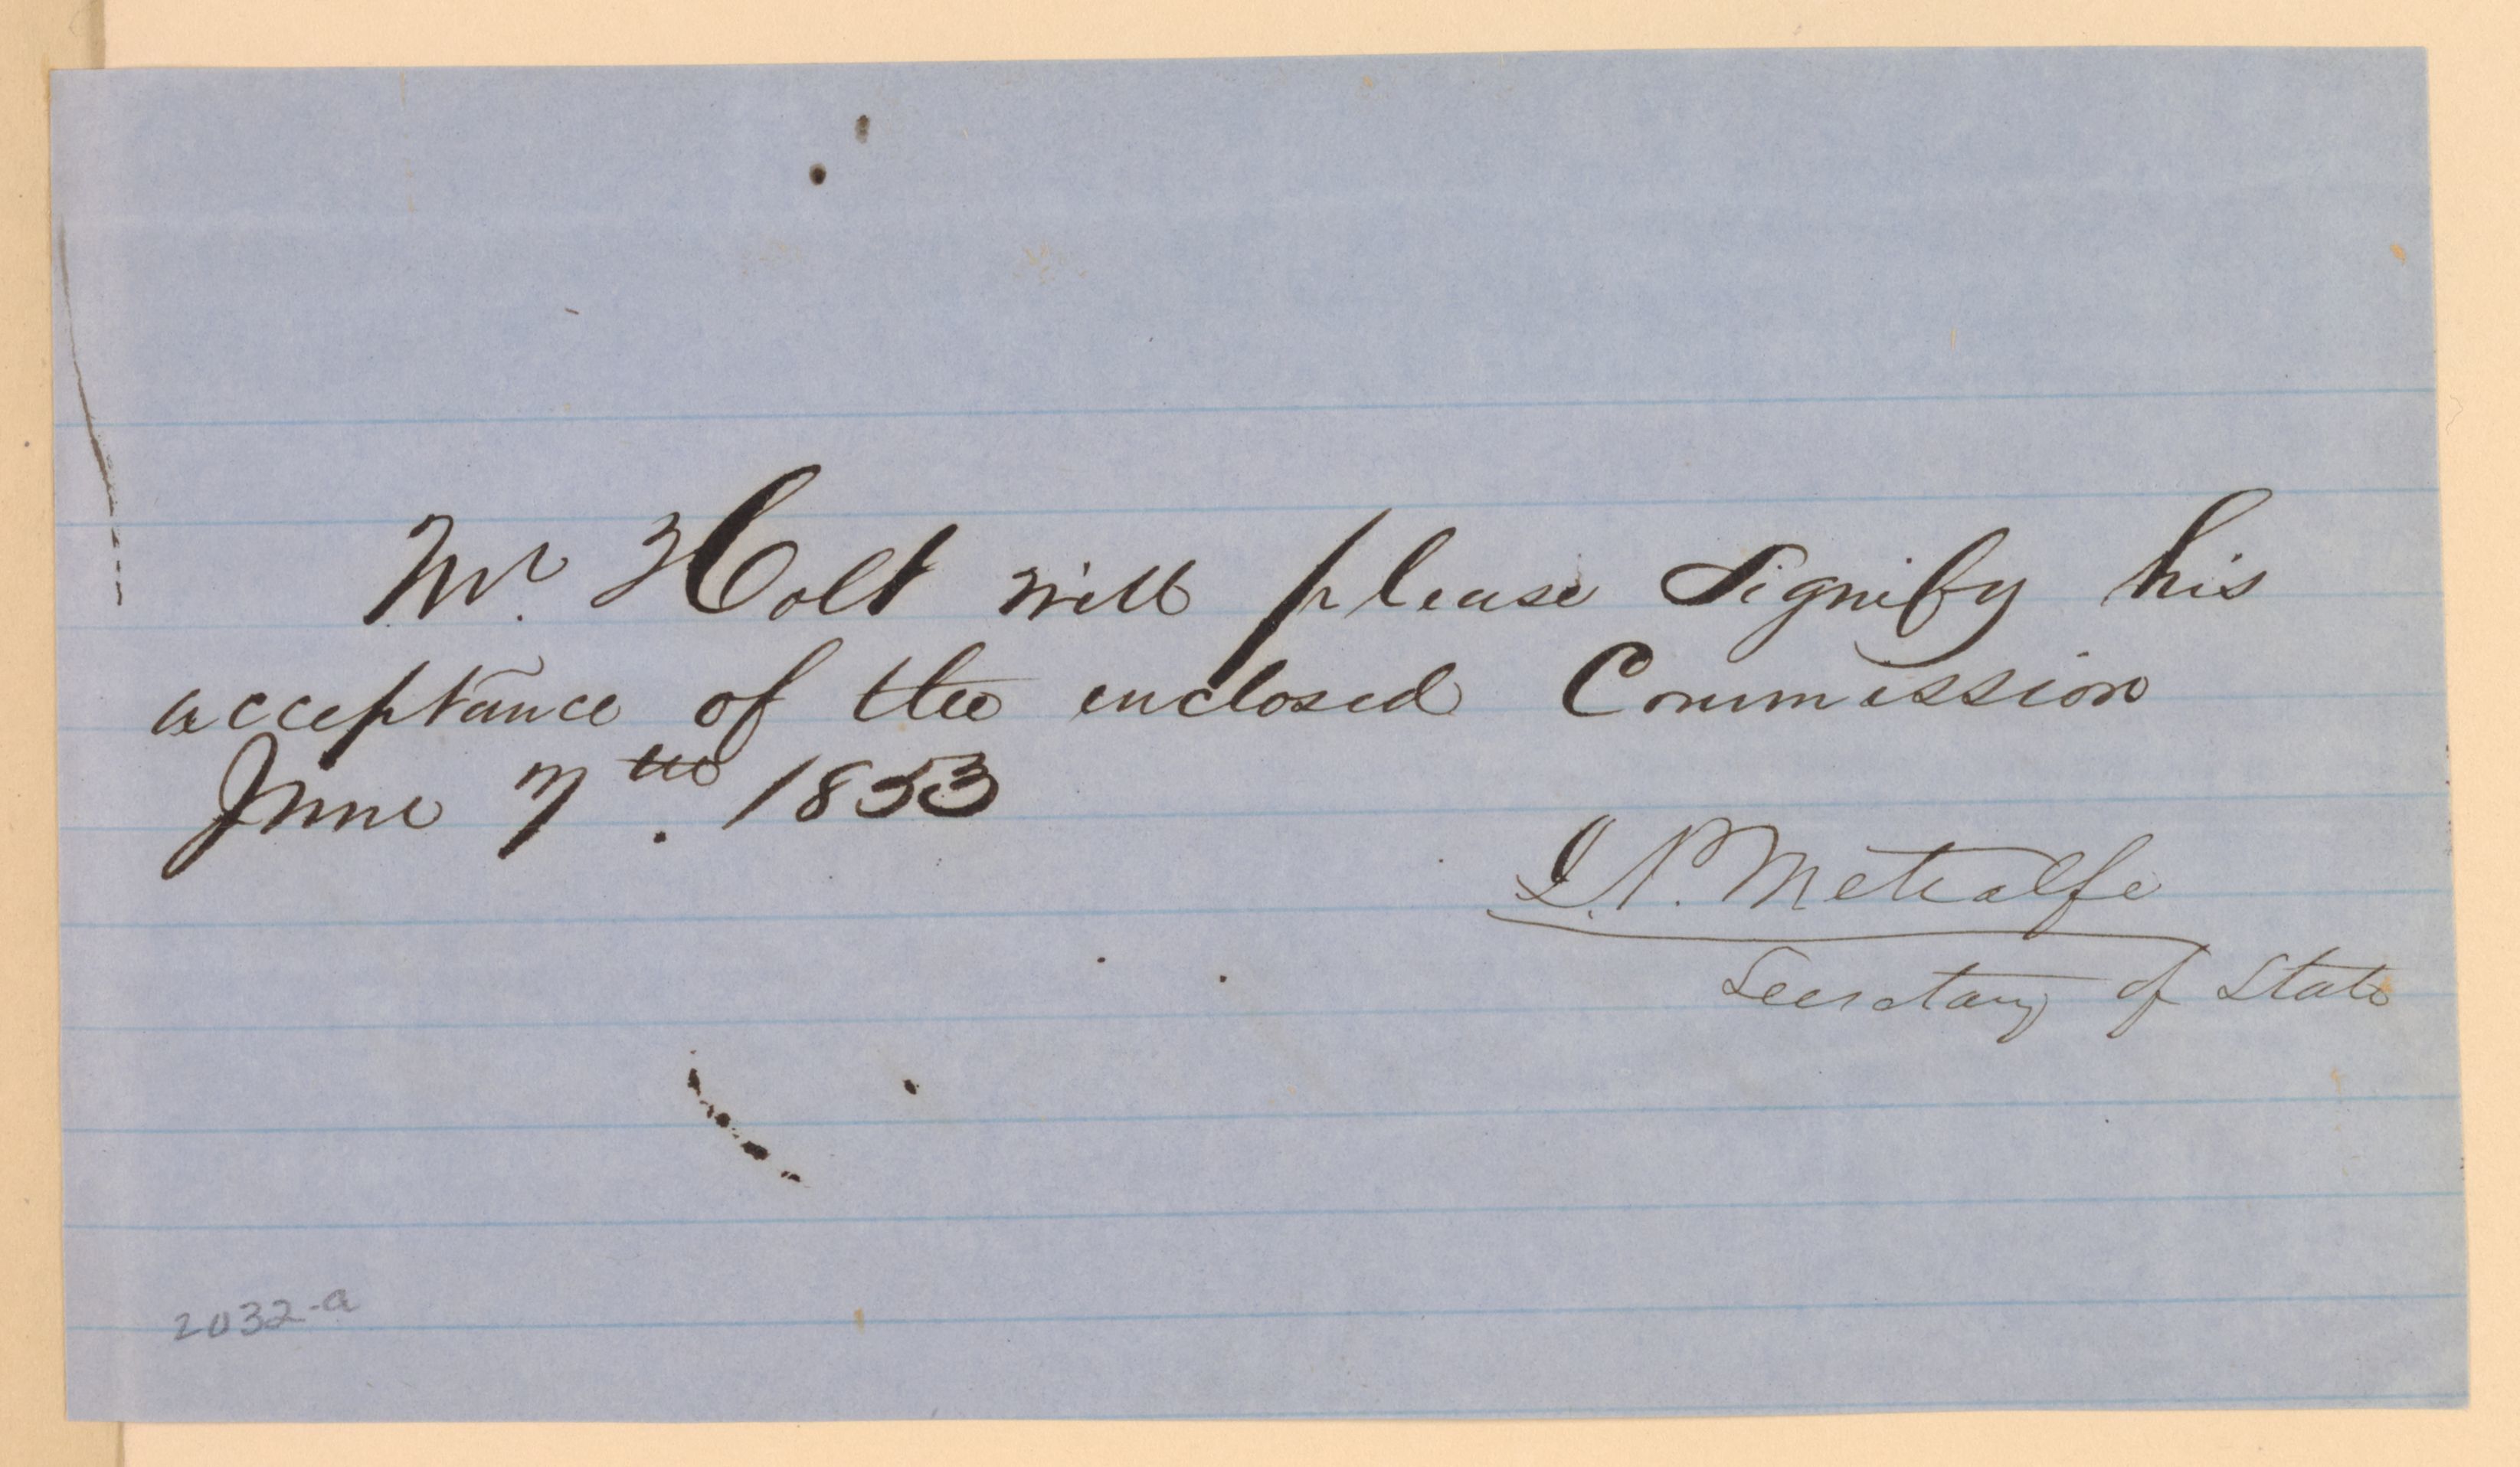 Mr. Holt will please signify his
acceptance of the enclosed Commission
June 7th. 1853
J. P. Metcalfe
Secretary of State
2032-a